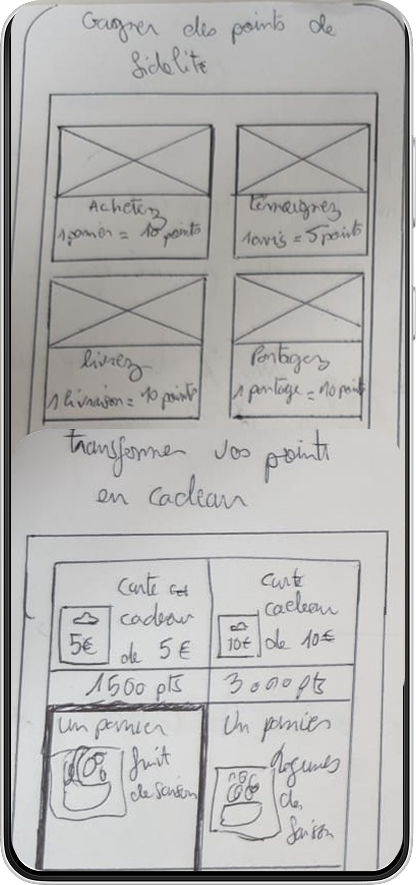 Gagner des points de
fidelité
Achetez
1 panier = 10 points
Témoignez
1 avis = 5 points
livrez
1 livraison = 10 points
Partagez
1 partage = 10 points
transformer vos points
en cadeau
Carte
cadeau
de 5€
5€
Carte
cadeau
de 10€
10€
1500 pts
3000 pts
Un panier
fruit
de saison
Un panier
légumes
de
saison